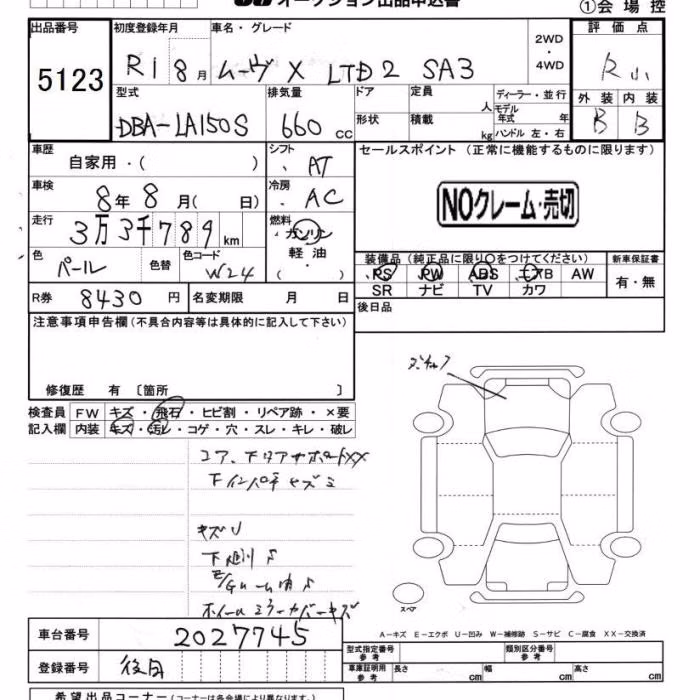 オークション出品申込書
①会場控
出品番号
5123
初度登録年月
R1 8月
車名・グレード
ムーヴ X LTD2 SA3
2WD
・
4WD
評価点
R小
外装 内装
B B
型式
DBA-LA150S
排気量
660 cc
ドア
定員
人
ディーラー・並行
形状
積載
kg
モデル年式 年
ハンドル 左・右
車歴
自家用・( )
シフト
AT
セールスポイント (正常に機能するものに限ります)
車検
8年 8月( 日)
冷房
AC
NOクレーム・売切
走行
3万3千789km
燃料
ガソリン
軽油
( )
色
パール
色替
色コード
W24
装備品 (純正品に限り○をつけてください)
新車保証書
PS PW ABS エアB AW
有・無
SR ナビ TV カワ
R券 8430円
名変期限 月 日
後日品
注意事項申告欄(不具合内容等は具体的に記入して下さい)
修復歴 有 〔箇所 〕
検査員 FW キズ・飛石・ヒビ割・リペア跡・×要
記入欄 内装 キズ・汚レ・コゲ・穴・スレ・キレ・破レ
コア、下リアサポートXX
キズU
ホイールミラーカバーキズ
スペア
A-キズ E-エクボ U-凹み W-補修跡 S-サビ C-腐食 XX-交換済
車台番号 2027745
型式指定番号
参考
類別区分番号
参考
登録番号 後日
車庫証明用
参考
長さ cm 幅 cm 高さ cm
希望出品コーナー(コーナーは各会場によって